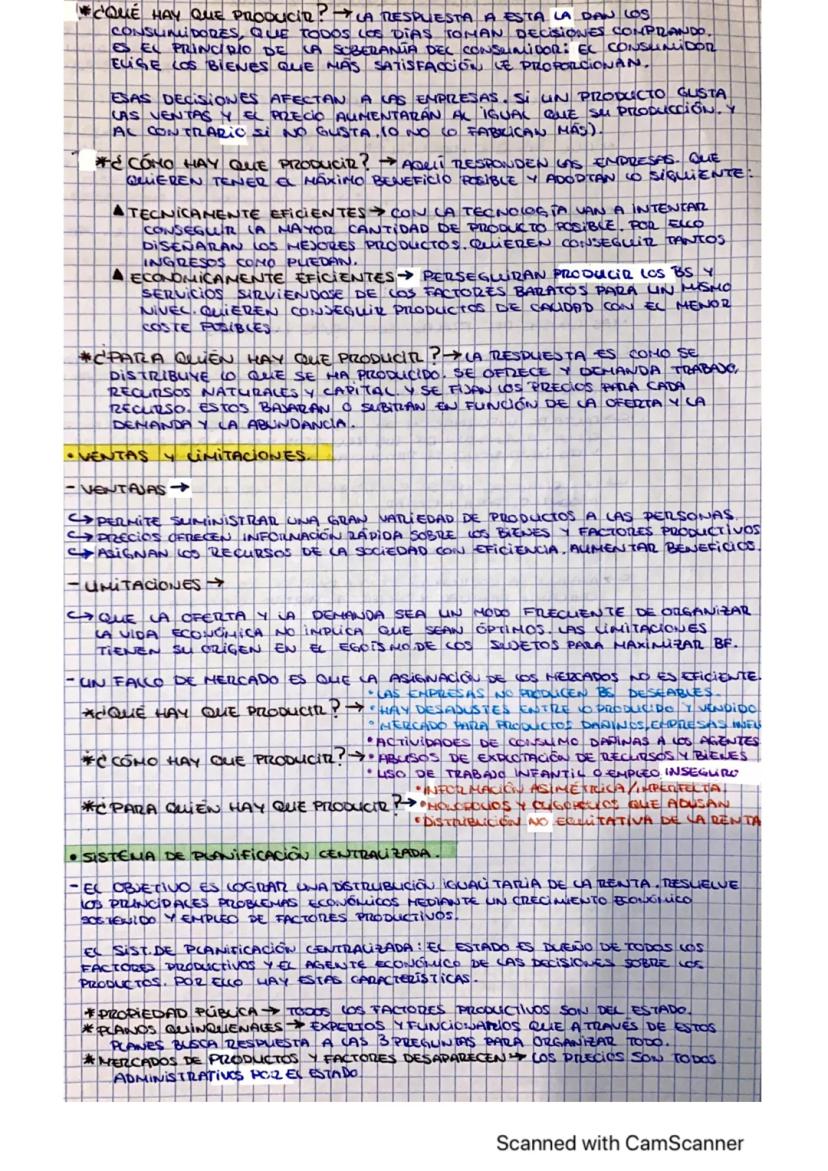 *¿QUÉ HAY QUE PRODUCIR? → LA RESPUESTA A ESTA LA DAN LOS
CONSUMIDORES, QUE TODOS LOS DIAS TOMAN DECISIONES COMPRANDO.
ES EL PRINCIPIO DE LA SOBERANÍA DEL CONSUMIDOR: EL CONSUMIDOR
ELIGE LOS BIENES QUE MÁS SATISFACCIÓN LE PROPORCIONAN.
ESAS DECISIONES AFECTAN A LAS EMPRESAS. SI UN PRODUCTO GUSTA
LAS VENTAS Y EL PRECIO AUMENTARÁN AL IGUAL QUE SU PRODUCCIÓN. Y
AL CONTRARIO SI NO GUSTA. (O NO LO FABRICAN MÁS).
*¿CÓMO HAY QUE PRODUCIR? → AQUÍ RESPONDEN LAS EMPRESAS. QUE
QUIEREN TENER EL MÁXIMO BENEFICIO POSIBLE Y ADOPTAN LO SIGUIENTE:
▲ TECNICAMENTE EFICIENTES → CON LA TECNOLOGÍA VAN A INTENTAR
CONSEGUIR LA MAYOR CANTIDAD DE PRODUCTO POSIBLE. POR ELLO
DISEÑARAN LOS MEJORES PRODUCTOS. QUIEREN CONSEGUIR TANTOS
INGRESOS COMO PUEDAN.
▲ ECONOMICAMENTE EFICIENTES → PERSEGUIRAN PRODUCIR LOS BS Y
SERVICIOS SIRVIENDOSE DE LOS FACTORES BARATOS PARA UN MISMO
NIVEL. QUIEREN CONSEGUIR PRODUCTOS DE CALIDAD CON EL MENOR
COSTE POSIBLES.
*¿PARA QUIÉN HAY QUE PRODUCIR? → LA RESPUESTA ES COMO SE
DISTRIBUYE LO QUE SE HA PRODUCIDO. SE OFRECE Y DEMANDA TRABAJO,
RECURSOS NATURALES Y CAPITAL. Y SE FIJAN LOS PRECIOS PARA CADA
RECURSO. ESTOS BAJARAN O SUBIRAN EN FUNCIÓN DE LA OFERTA Y LA
DEMANDA Y LA ABUNDANCIA.
• VENTAS Y LIMITACIONES.
- VENTAJAS →
↪ PERMITE SUMINISTRAR UNA GRAN VARIEDAD DE PRODUCTOS A LAS PERSONAS.
↪ PRECIOS OFRECEN INFORMACIÓN RÁPIDA SOBRE LOS BIENES Y FACTORES PRODUCTIVOS
↪ ASIGNAN LOS RECURSOS DE LA SOCIEDAD CON EFICIENCIA. AUMENTAR BENEFICIOS.
- LIMITACIONES →
↪ QUE LA OFERTA Y LA DEMANDA SEA UN MODO FRECUENTE DE ORGANIZAR
LA VIDA ECONÓMICA NO IMPLICA QUE SEAN ÓPTIMOS. LAS LIMITACIONES
TIENEN SU ORIGEN EN EL EGOÍSMO DE LOS SUJETOS PARA MAXIMIZAR BF.
- UN FALLO DE MERCADO ES QUE LA ASIGNACIÓN DE LOS MERCADOS NO ES EFICIENTE.
• LAS EMPRESAS NO PRODUCEN BS DESEABLES.
*¿QUÉ HAY QUE PRODUCIR? → • HAY DESAJUSTES ENTRE LO PRODUCIDO Y VENDIDO
• MERCADO PARA PRODUCTOS DAÑINOS, EMPRESAS
• ACTIVIDADES DE CONSUMO DAÑINAS A LOS AGENTES
*¿CÓMO HAY QUE PRODUCIR? → • ABUSOS DE EXPLOTACIÓN DE RECURSOS Y BIENES
• USO DE TRABAJO INFANTIL O EMPLEO INSEGURO
• INFORMACIÓN ASIMÉTRICA / IMPERFECTA
*¿PARA QUIÉN HAY QUE PRODUCIR? → • MONOPOLIOS Y OLIGOPOLIOS QUE ABUSAN
• DISTRIBUCIÓN NO EQUITATIVA DE LA RENTA
• SISTEMA DE PLANIFICACIÓN CENTRALIZADA.
- EL OBJETIVO ES LOGRAR UNA DISTRUBUCIÓN IGUALITARIA DE LA RENTA. RESUELVE
LOS PRINCIDALES PROBLEMAS ECONÓMICOS MEDIANTE UN CRECIMIENTO ECONÓMICO
SOSTENIDO Y EMPLEO DE FACTORES PRODUCTIVOS.
EL SIST. DE PLANIFICACIÓN CENTRALIZADA: EL ESTADO ES DUEÑO DE TODOS LOS
FACTORES PRODUCTIVOS Y EL AGENTE ECONÓMICO DE LAS DECISIONES SOBRE LOS
PRODUCTOS. POR ELLO HAY ESTAS CARACTERÍSTICAS.
* PROPIEDAD PÚBLICA → TODOS LOS FACTORES PRODUCTIVOS SON DEL ESTADO.
* PLANOS QUINQUENALES → EXPERTOS Y FUNCIONARIOS QUE A TRAVÉS DE ESTOS
PLANES BUSCA RESPUESTA A LAS 3 PREGUNTAS PARA ORGANIZAR TODO.
* MERCADOS DE PRODUCTOS Y FACTORES DESAPARECEN → LOS PRECIOS SON TODOS
ADMINISTRATIVOS POR EL ESTADO.
Scanned with CamScanner